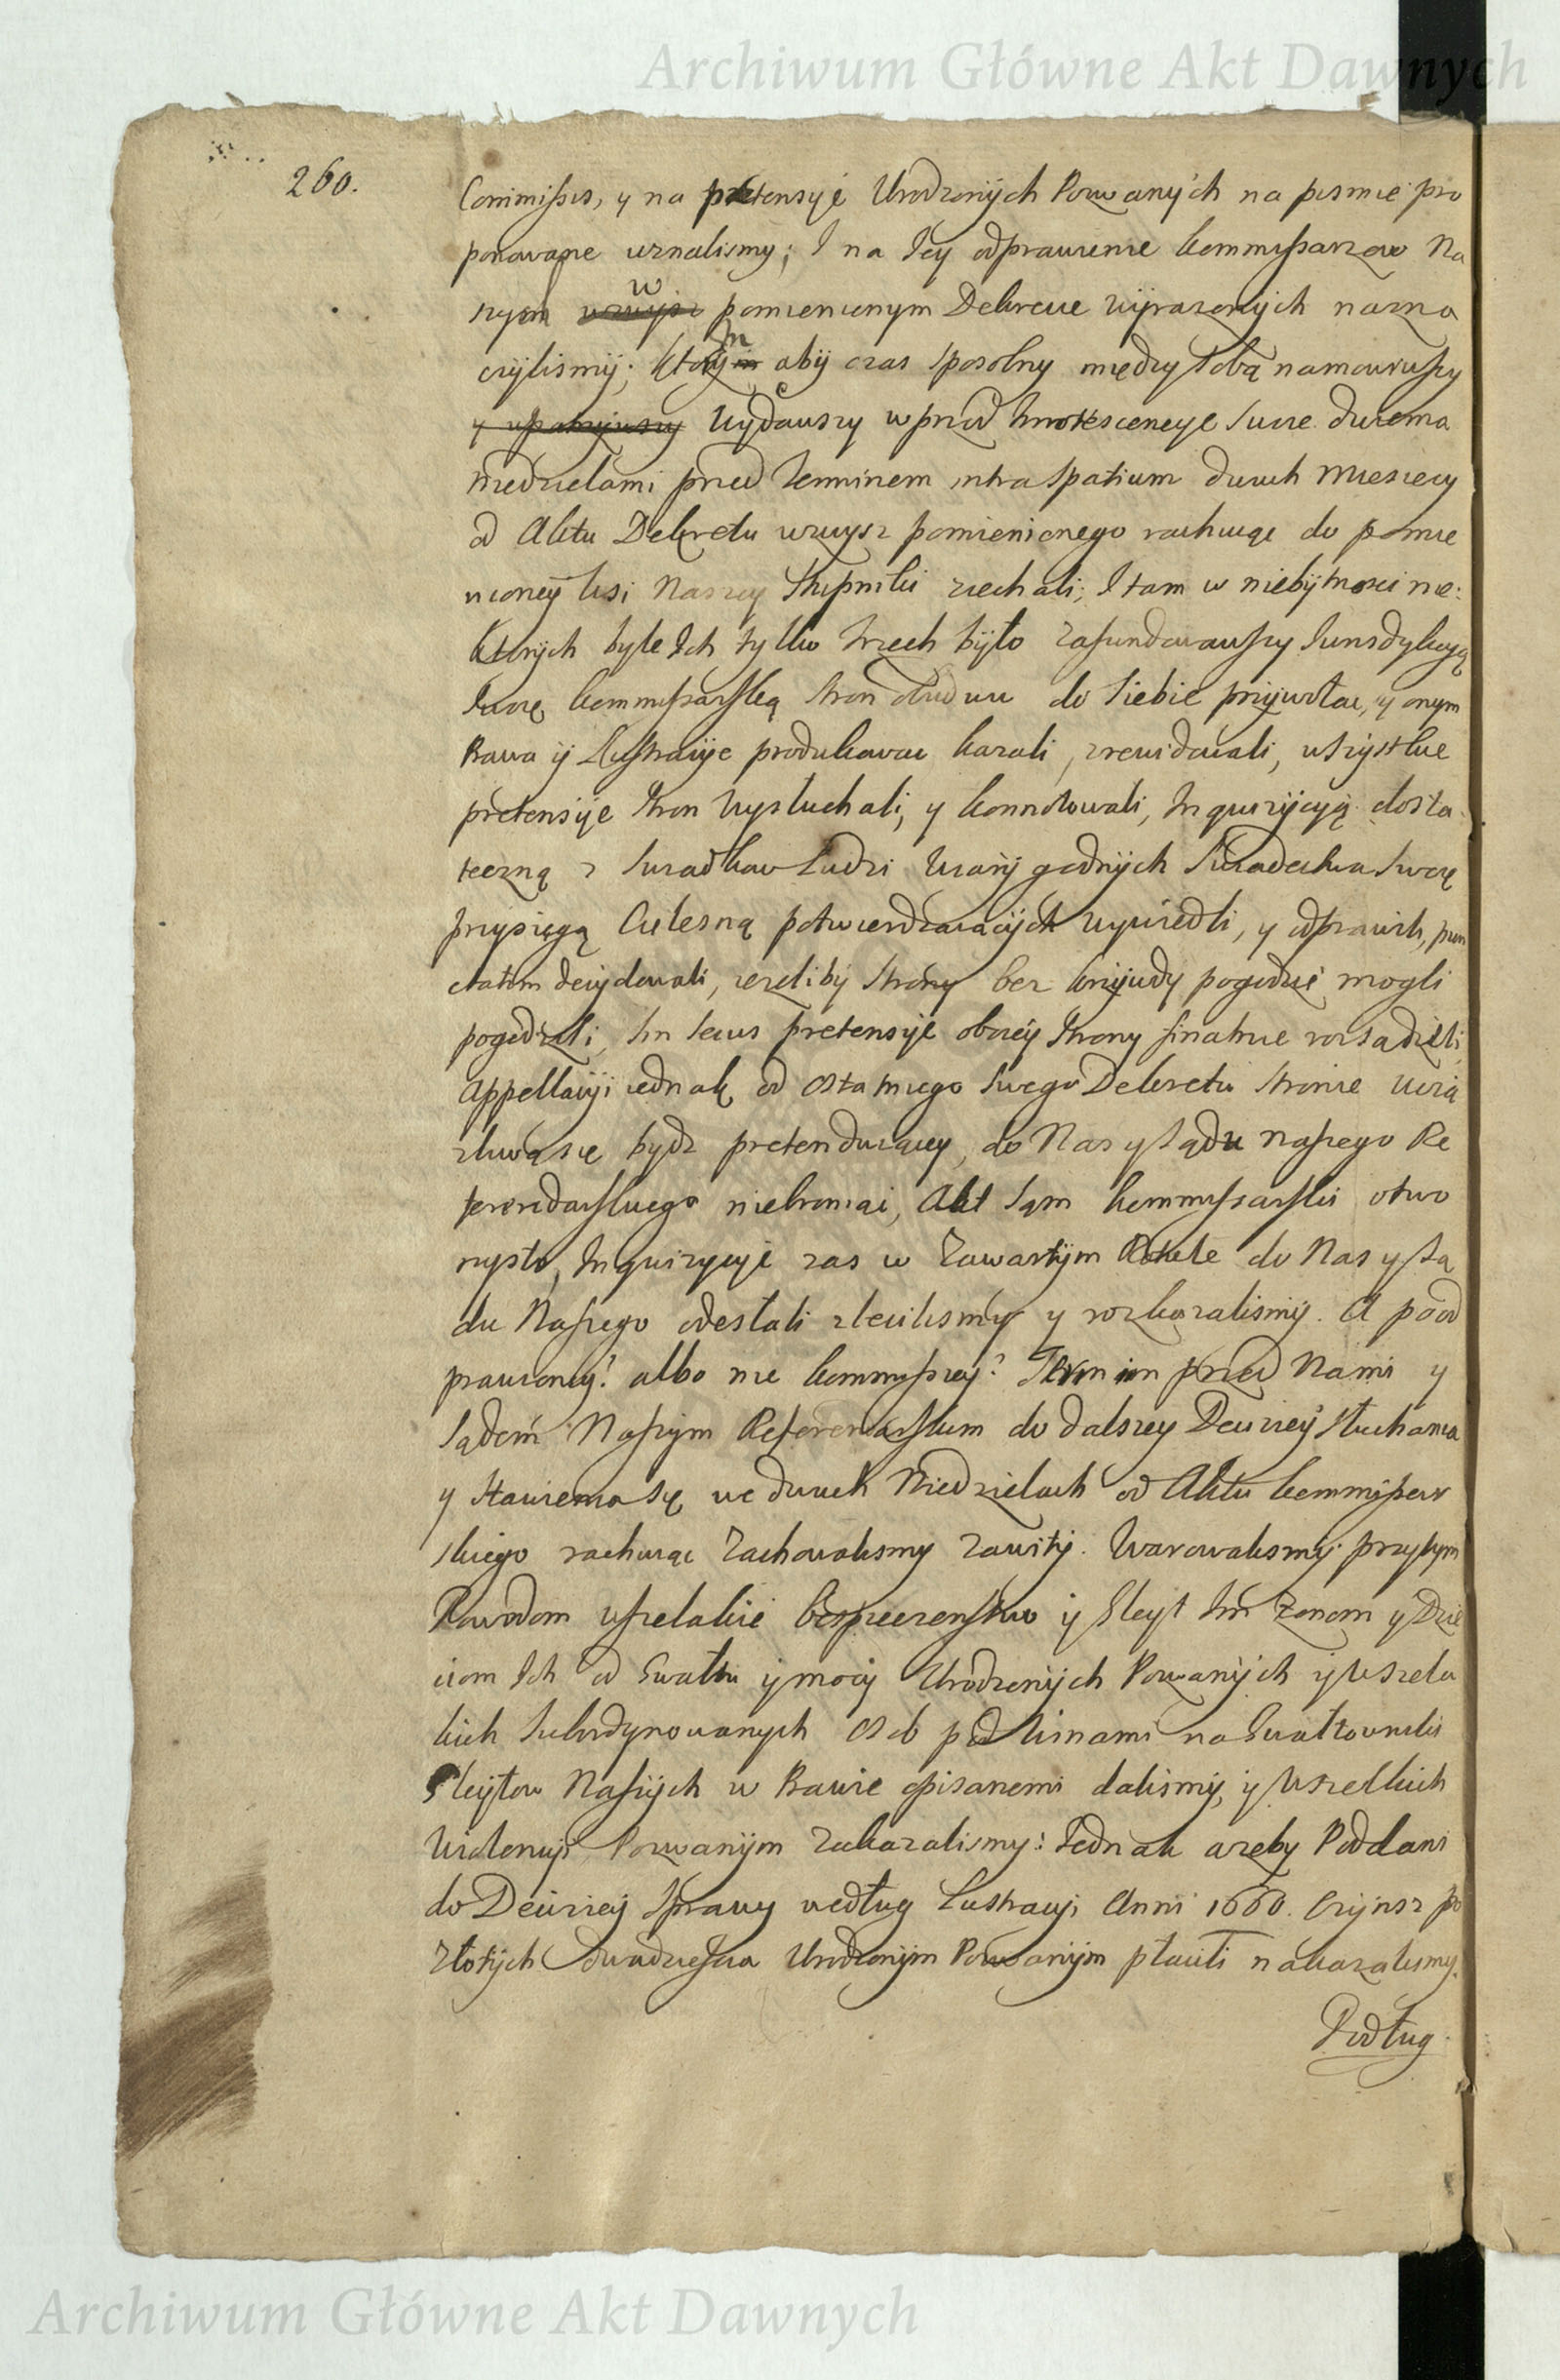 Archiwum Główne Akt Dawnych
260.
Commissis, y na pretensyé Urodzonych Pozwanych na pismie pro
ponowane uznalismy; I na Iey odprawienie kommissarzow Na
szych w pomienionym Dekrecie wyrazonych nazna
czylismy; Ktorym aby czas sposobny między sobą namowiwszy
y upatrzywszy wydawszy wprzod Innotescencye swoie dwiema
niedzielami przed Terminem intra spatium dwuch Miesiecy
od Aktu Dekretu wzwysz pomienionego rachuiąc do pomie
nioney wsi Naszey Stupniki ziechali; I tam w niebytnosci nie:
ktorych byle Ich tylko trzech było zafundowawszy Iurisdykcyą
Swoię kommissarską stron obudwu do siebie przywołać, y onym
Prawa y Lustracye produkować kazali, zrewidowali, wszystkie
pretensye stron wysłuchali, y konnotowali, Inquizycyą dosta
teczną z swiadkow Ludzi wiary godnych swiadectwa swoie
przysięgą Cielesną potwierdzaiących wywiedli, y odprawili, pun
ctatim decydowali, iezeliby strony bez krzywdy pogodzić mogli
pogodzili, Sin secus pretensye oboiey strony finalnie rozsadzili,
Appellacyi iednak od ostatniego swego Dekretu stronie ucią
zliwą się bydz pretenduiącey, do Nas y Sądu naszego Re
ferendarskiego niebroniąc, Akt sam kommissarski otwo
rzysto, Inquizycye zas w zawartym Rotule do Nas y Są
du Naszego odesłali zlecilismy y rozkazalismy. A po od
prawioney? albo nie kommissyey? Termin przed Nami y
Sądem Naszym Referendarskim do dalszey Decizyey słuchania
y stawienia się we dwuch Niedzielach od Aktu kommissar
skiego rachuiąc zachowalismy zawity. Warowalismy przytym
Powodom wszelakie bespieczenstwo y Gleyt Im Zonom y Dzie
ciom Ich od Gwałtu y mocy Urodzonych Pozwanych y wszela
kich subordynowanych osob pod winami na Gwałtowniki
Gleytow Naszych w Prawie opisanemi dalismy, y wszelkich
violencyi Pozwanym zakazalismy: Iednak azeby Poddani
do Decizyey sprawy według Lustracyi Anni 1660. Czynsz po
złotych dwadziescia Urodzonym Pozwanym płacili nakazalismy.
Podług
Archiwum Główne Akt Dawnych